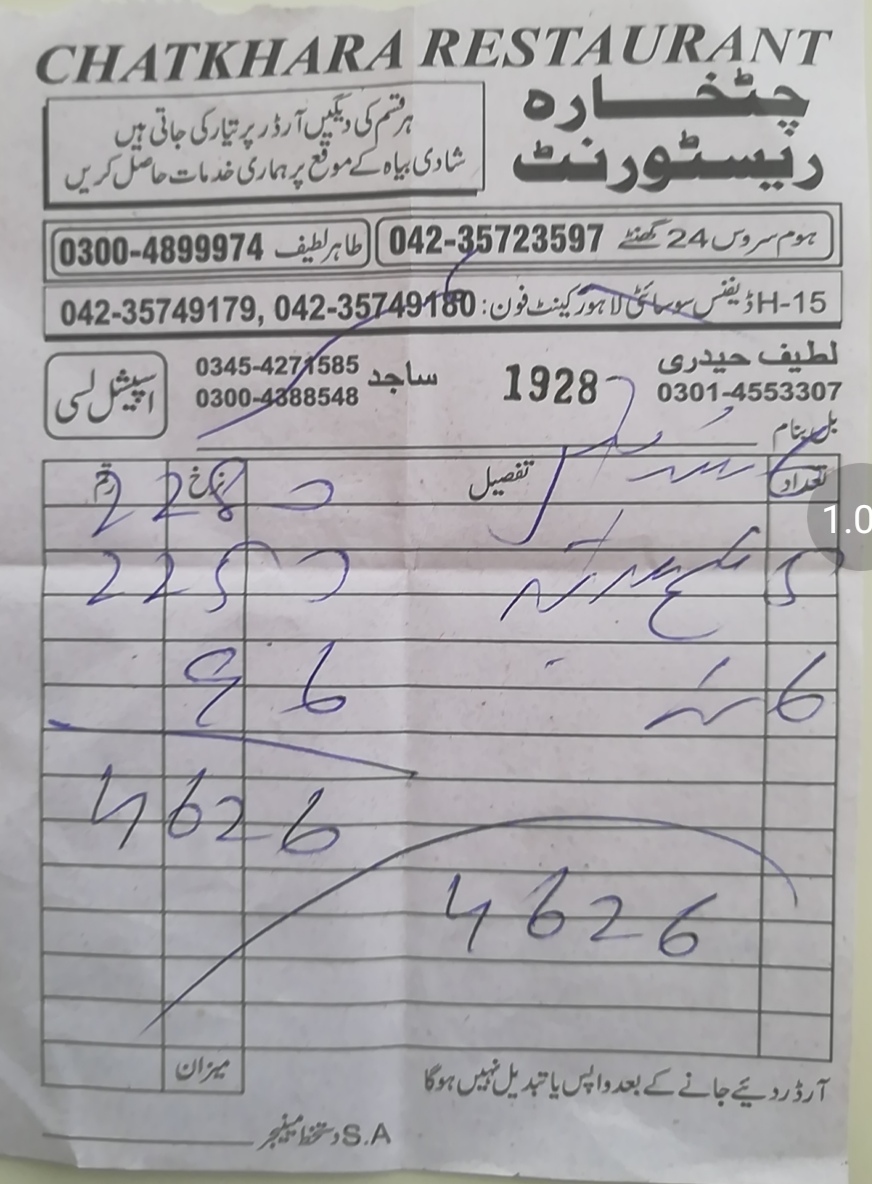 CHATKHARA RESTAURANT
چٹخارہ
ریسٹورنٹ
ہر قسم کی دیگیں آرڈر پر تیار کی جاتی ہیں
شادی بیاہ کے موقع پر ہماری خدمات حاصل کریں
ہوم سروس 24 گھنٹے 042-35723597
طاہر لطیف 0300-4899974
H-15 ڈیفنس سوسائٹی لاہور کینٹ فون: 042-35749179, 042-35749180
لطیف حیدری
0301-4553307
1928
ساجد 0345-4271585
0300-4388548
اسپیشل لسی
بل بنام
تعداد تفصیل نرخ رقم
2280
5 2250
6 96
4626
4626
میزان
آرڈر دیئے جانے کے بعد واپس یا تبدیل نہیں ہوگا
S.A دستخط مینیجر
1.0